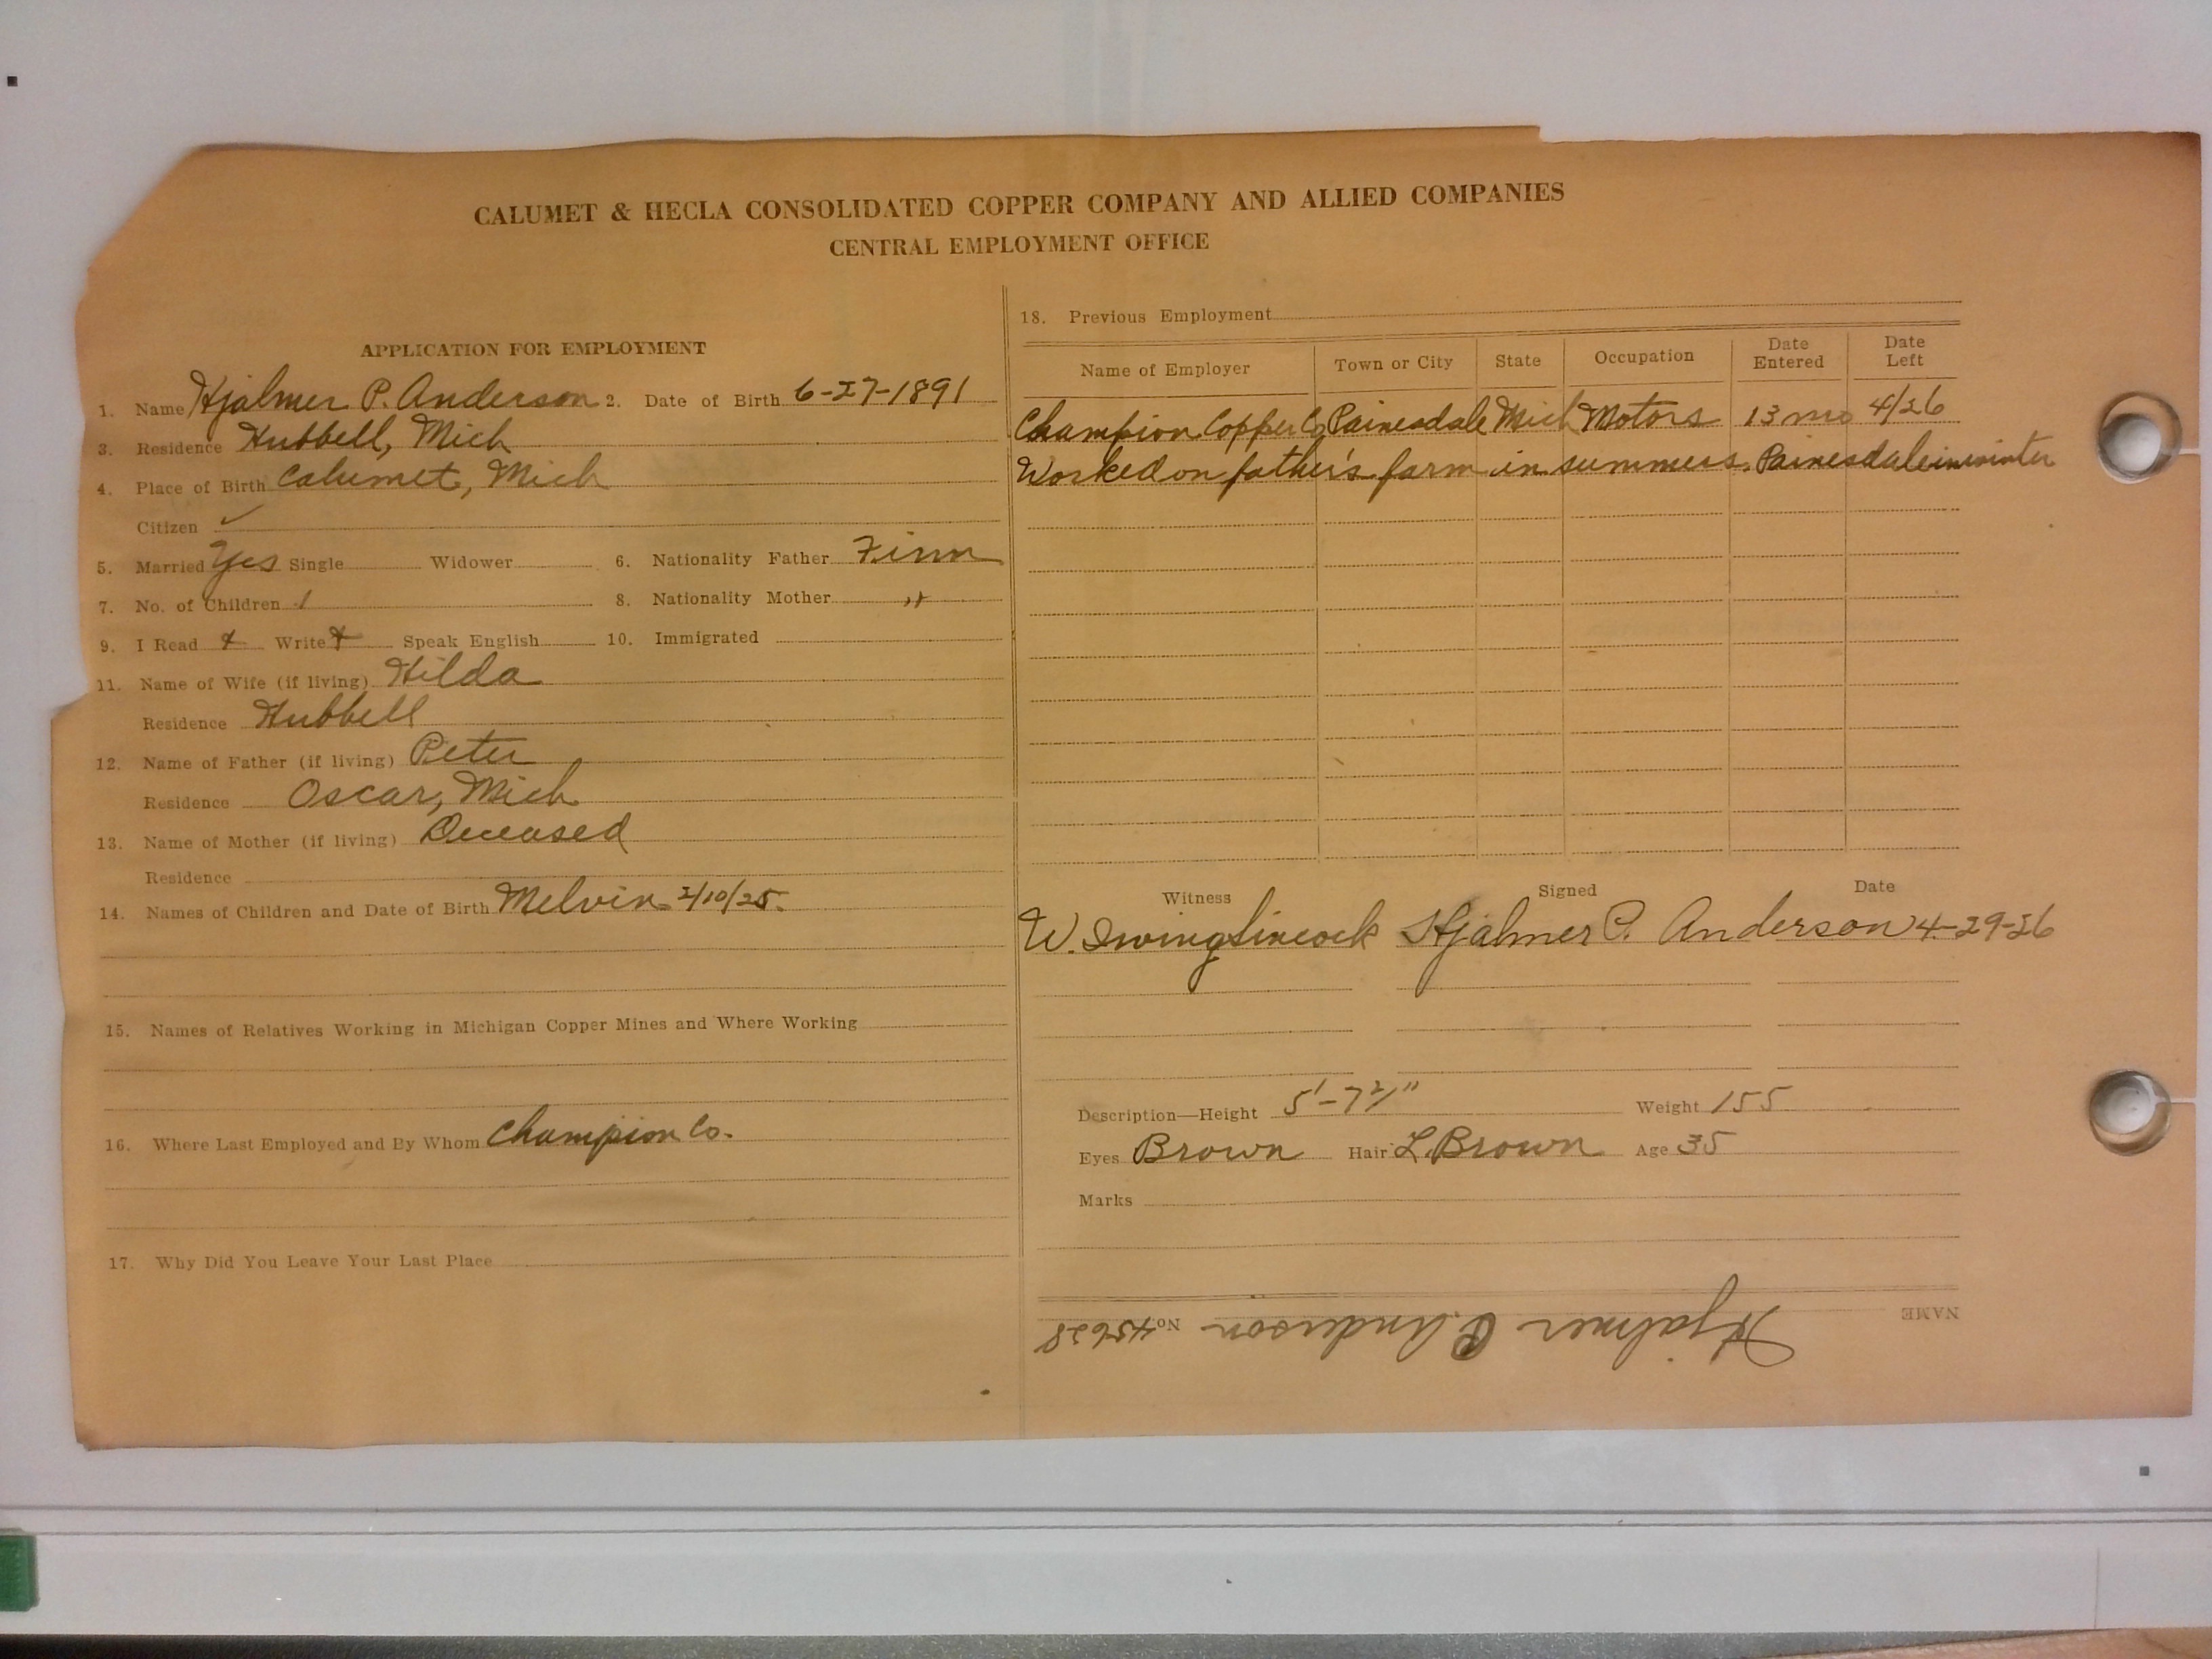 CALUMET & HECLA CONSOLIDATED COPPER COMPANY AND ALLIED COMPANIES
CENTRAL EMPLOYMENT OFFICE
APPLICATION FOR EMPLOYMENT
1. Name Hjalmer P. Anderson 2. Date of Birth 6-27-1891
3. Residence Hubbell, Mich
4. Place of Birth Calumet, Mich
Citizen ✓
5. Married Yes Single Widower 6. Nationality Father Finn
7. No. of Children 1 8. Nationality Mother "
9. I Read + Write + Speak English 10. Immigrated
11. Name of Wife (if living) Hilda
Residence Hubbell
12. Name of Father (if living) Peter
Residence Oscar, Mich
13. Name of Mother (if living) Deceased
Residence
14. Names of Children and Date of Birth Melvin - 2/10/25.
15. Names of Relatives Working in Michigan Copper Mines and Where Working
16. Where Last Employed and By Whom Champion Co.
17. Why Did You Leave Your Last Place
18. Previous Employment
Name of Employer Town or City State Occupation Date Entered Date Left
Champion Copper Co Painesdale Mich Motors 13 mo 4/26
Worked on father's farm in summers, Painesdale in winter
Witness Signed Date
W. Irving Sincock Hjalmer P. Anderson 4-29-26
Description—Height 5'-7 Weight 155
Eyes Brown Hair L. Brown Age 35
Marks
NAME Hjalmer P. Anderson No. 45628